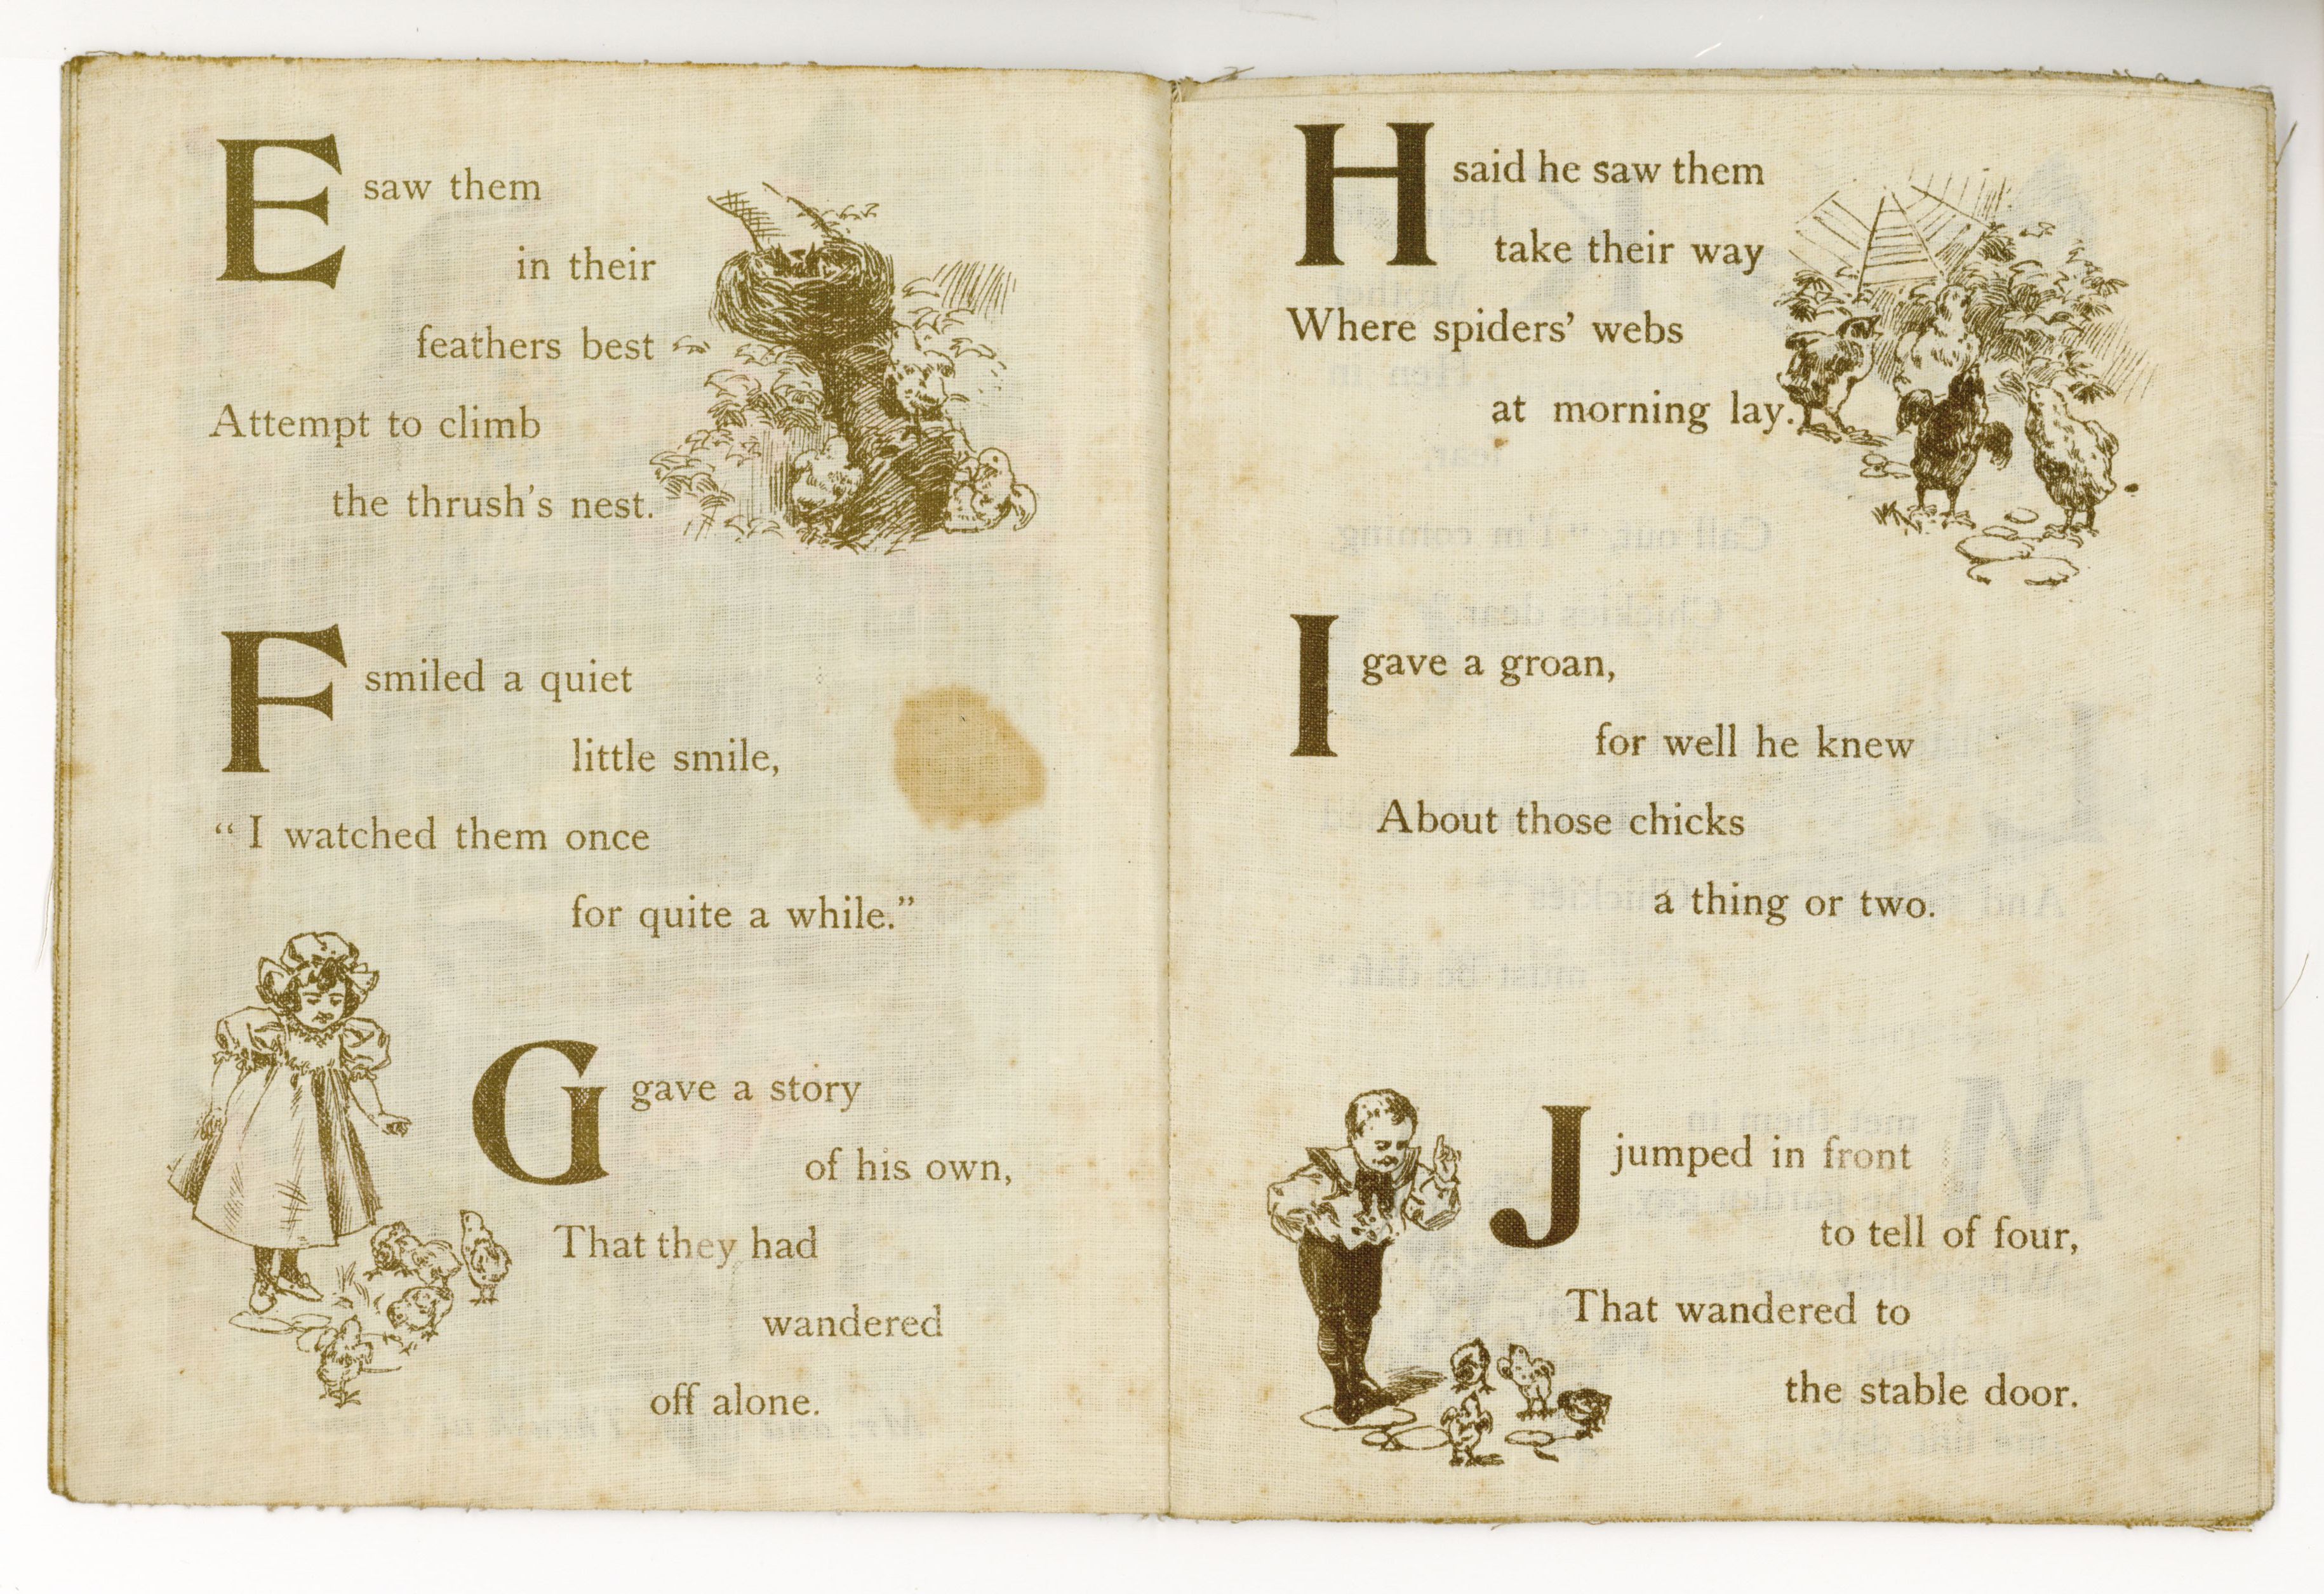 E saw them
in their
feathers best
Attempt to climb
the thrush's nest.
F smiled a quiet
little smile,
“ I watched them once
for quite a while.”
G gave a story
of his own,
That they had
wandered
off alone.
H said he saw them
take their way
Where spiders’ webs
at morning lay.
I gave a groan,
for well he knew
About those chicks
a thing or two.
J jumped in front
to tell of four,
That wandered to
the stable door.